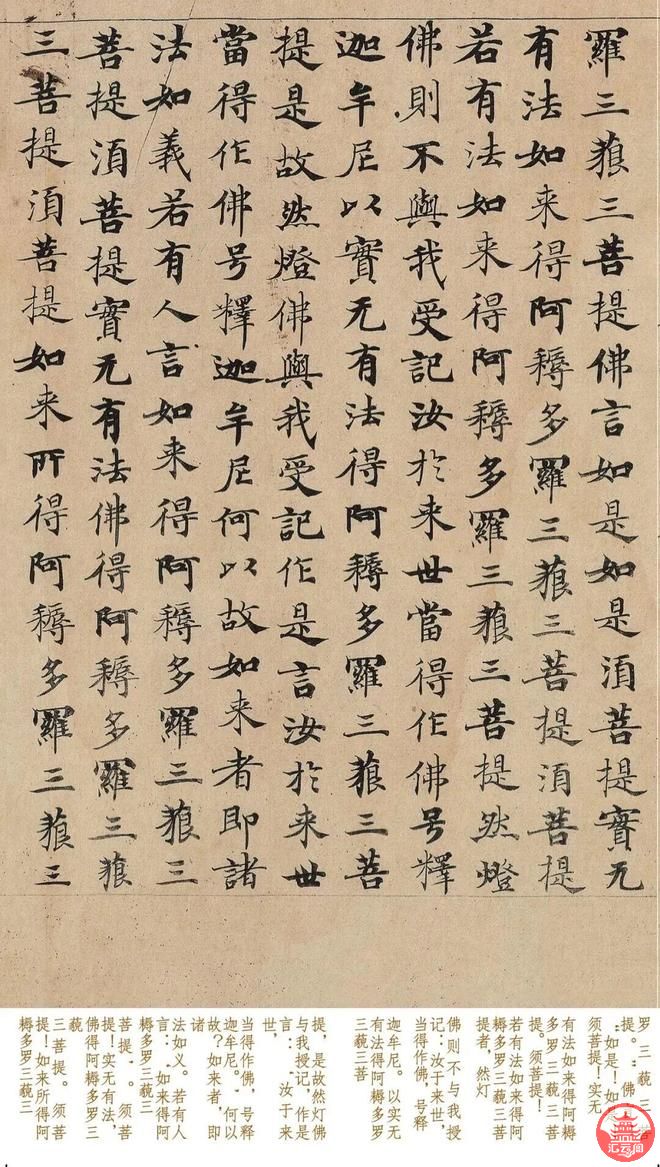 羅三藐三菩提佛言如是如是湏菩提實无
有法如来得阿耨多羅三藐三菩提湏菩提
若有法如来得阿耨多羅三藐三菩提然燈
佛則不與我受記汝於来世當得作佛号釋
迦牟尼以實无有法得阿耨多羅三藐三菩
提是故然燈佛與我受記作是言汝於来世
當得作佛号釋迦牟尼何以故如来者即諸
法如義若有人言如来得阿耨多羅三藐三
菩提湏菩提實无有法佛得阿耨多羅三藐
三菩提湏菩提如来所得阿耨多羅三藐三
罗三藐三
提。”佛
“如是！如
须菩提！实无
有法如来得阿耨
多罗三藐三菩
提。须菩提！
若有法如来得阿
耨多罗三藐三菩
提者，然灯
佛则不与我授
记：汝于来世，
当得作佛，号释
迦牟尼。以实无
有法得阿耨多罗
三藐三菩
提，是故然灯佛
与我授记，作是
言：‘汝于来
世，
当得作佛，号释
迦牟尼。’何以
故？如来者，即
诸
法如义。若有人
言：‘如来得阿
耨多罗三藐三
菩提’。须菩
提！实无有法，
佛得阿耨多罗三
藐
三菩提。须菩
提！如来所得阿
耨多罗三藐三
汇云阁